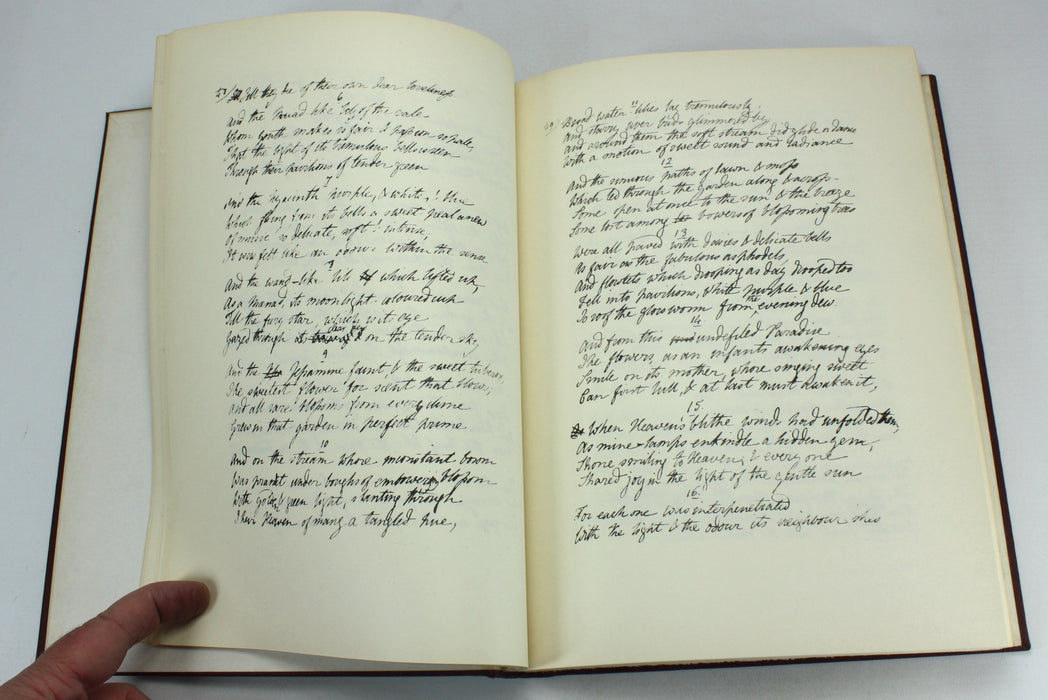 53/ Till they die of their own dear loveliness
6
And the Naiad like lily of the vale
Whom youth makes so fair & passion so pale,
That the light of its tremulous bells is seen
Through their pavilions of tender green
7
And the hyacinth purple, & white, & blue
Which flung from its bells a sweet peal anew
Of music so delicate, soft & intense,
It was felt like an odour within the sense
8
And the wand-like lily which lifted up,
As a Mænad, its moonlight-coloured cup
Till the fiery star, which is its eye
Gazed through clear dew on the tender sky
9
And the Jessamine faint & the sweet tuberose
The sweetest flower for scent that blows,
And all rare blossoms from every clime
Grew in that garden in perfect prime
10
And on the stream whose inconstant bosom
Was prankt under boughs of embowering blossom
With golden & green light, slanting through
Their Heaven of many a tangled hue,
11
Broad water lilies lay tremulously
And starry river buds glimmered by
And around them the soft stream did glide & dance
With a motion of sweet sound and radiance
12
And the sinuous paths of lawn & moss
Which led through the garden along & across—
Some open at once to the sun & the breeze
Some lost among bowers of blossoming trees
13
Were all paved with daisies & delicate bells
As fair as the fabulous asphodels
And flowrets which drooping as day drooped too
Fell into pavilions, white purple & blue
To roof the glow worm from the evening dew.
14
And from this undefiled Paradise
The flowers, as an infants awakening eyes
Smile on its mother, whose singing sweet
Can first lull, & at last must awaken it,
15
When Heaven's blithe winds had unfolded them,
As mine-lamps enkindle a hidden gem,
Shone smiling to Heaven; & every one
Shared joy in the light of the gentle sun
16
For each one was interpenetrated
With the light & the odour its neighbour shed